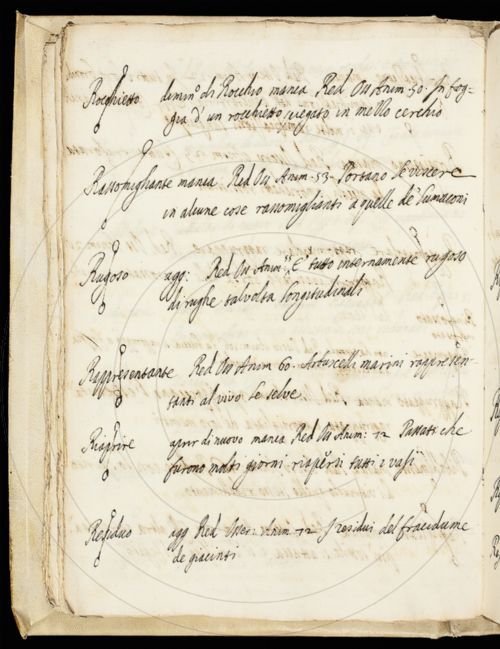 Rocchietto dimin.º di Rocchio manca Red Oss Anim. 50. In fog=
gia d'un rocchietto piegato in mezzo cerchio
Rassomigliante manca Red Oss Anim. 53. Portano le viscere
in alcune cose rassomiglianti a quelle de' lumaconi
Rugoso agg: Red Oss Anim 55. E tutto internamente rugoso
di rughe talvolta longitudinali
Rappresentante Red Oss Anim 60. Arbuscelli marini rappresen=
tanti al vivo le selve
Riaprire aprir di nuovo manca Red Oss Anim: 72 Passati che
furono molti giorni riapersi tutti i vasi
Residuo agg Red Oss: Anim 72 I residui del fracidume
de giacinti